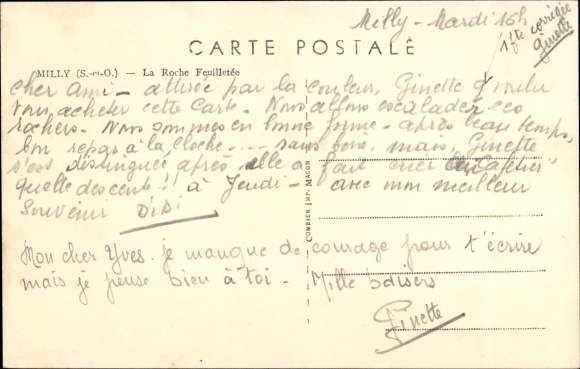 Milly - Mardi 16h
1 fte corrigée
Ginette
CARTE POSTALE
MILLY (S.-et-O.) — La Roche Feuilletée
Cher Ami - attirée par la couleur, Ginette a voulu
vous acheter cette Carte - Nous allons escalader ces
rochers - Nous sommes en bonne forme - après beau temps,
bon repas à la Cloche - - - - sans boire, mais Ginette
s'est distinguée après, elle a fait crier
quelle descente !! à Jeudi - avec mon meilleur
Souvenir DiDi
COMBIER IMP. MACON
Mon cher Yves. je manque de courage pour t'écrire
mais je pense bien à toi - Mille baisers
Ginette